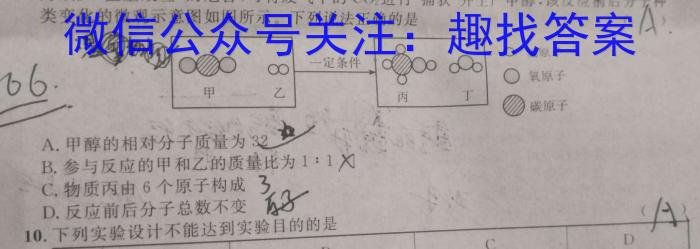 类变化的微观示意图如图所示。下列说法正确的是
微信公众号关注：趣找答案
A
66.
一定条件
氧原子
碳原子
甲 乙 丙 丁
A.甲醇的相对分子质量为32
B.参与反应的甲和乙的质量比为1∶1 X
C.物质丙由6个原子构成
D.反应前后分子总数不变
(A)
10.下列实验设计不能达到实验目的的是
C D